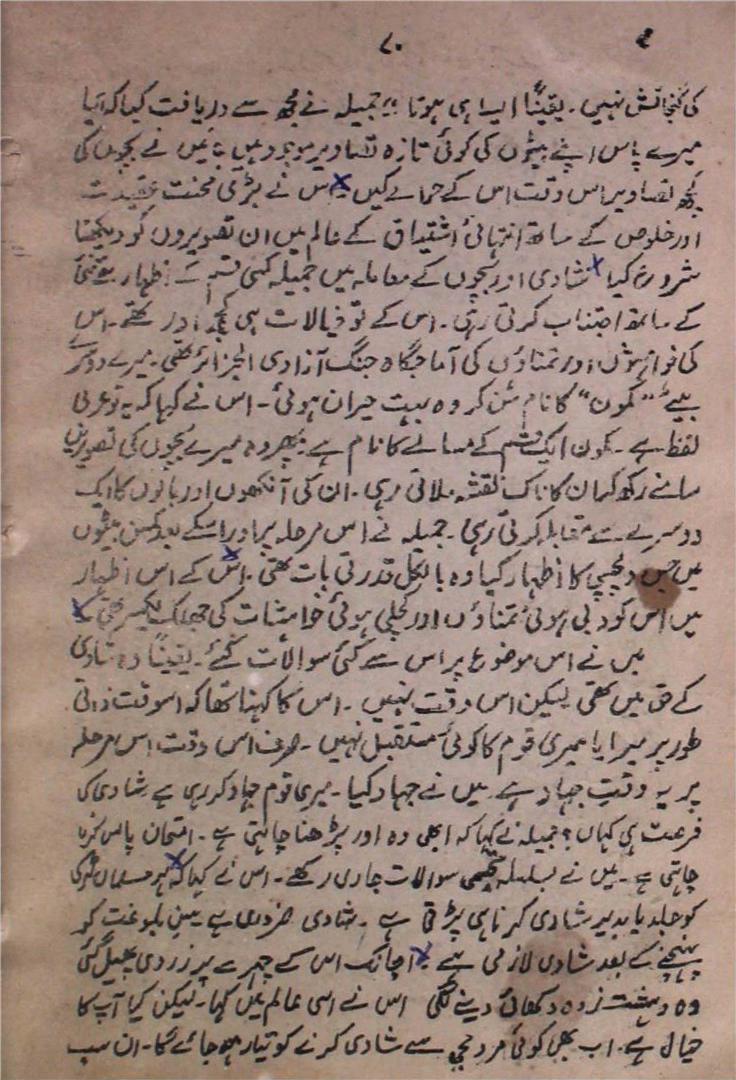 ۸۰
کی گنجائش نہیں۔ یقیناً ایسا ہی ہوتا" جمیلہ نے مجھ سے دریافت کیا کہ آیا
میرے پاس اپنے بیٹوں کی کوئی تازہ تصاویر موجود ہیں؟ میں نے بچوں کی
کچھ تصاویر اس وقت اس کے حوالے کیں اس نے بڑی محنت عقیدت
اور خلوص کے ساتھ انتہائی اشتیاق کے عالم میں ان تصویروں کو دیکھنا
شروع کیا شادی اور بچوں کے معاملہ میں جمیلہ کسی قسم کے اظہار
کے ساتھ اجتناب کرتی رہتی۔ اس کے تو خیالات ہی کچھ اور تھے۔ اس
کی خواہشوں اور تمناؤں کی آماجگاہ جنگ آزادی الجزائر تھی۔ میرے دوسرے
بیٹے "کمون" کا نام سن کر وہ بہت حیران ہوئی۔ اس نے کہا کہ یہ تو عربی
لفظ ہے۔ کمون ایک قسم کے مسالے کا نام ہے؛ پھر وہ میرے بچوں کی تصویریں
سامنے رکھ کر ان کا ناک نقشہ ملاتی رہی۔ ان کی آنکھوں اور بالوں کا ایک
دوسرے سے مقابلہ کرتی رہی۔ جمیلہ نے اس مرحلہ پر اور اسکے بعد کمسن بیٹوں
میں جس دلچسپی کا اظہار کیا وہ بالکل قدرتی بات تھی۔ اس کے اس اظہار
میں اس کو دبی ہوئی تمناؤں اور کچلی ہوئی خواہشات کی جھلک
میں نے اس موضوع پر اس سے کئی سوالات کئے۔ یقیناً وہ شادی
کے حق میں تھی لیکن اس وقت نہیں۔ اس کا کہنا تھا کہ اسوقت ذاتی
طور پر میرا یا میری قوم کا کوئی مستقبل نہیں۔ صرف اس وقت اس مرحلہ
پر یہ وقتِ جہاد ہے۔ میں نے جہاد کیا۔ میری قوم جہاد کر رہی ہے شادی کی
فرصت ہی کہاں؟ جمیلہ نے کہا کہ ابھی وہ اور پڑھنا چاہتی ہے۔ امتحان پاس کرنا
چاہتی ہے۔ میں نے سلسلہ سوالات جاری رکھے۔ اس نے کہا کہ ہر مسلمان لڑکی
کو جلد یا بدیر شادی کرنا ہی پڑتی ہے۔ شادی ضروری ہے سنِ بلوغت کو
پہنچنے کے بعد شادی لازمی ہے۔ اچانک اس کے چہرے پر زردی پھیل گئی
وہ دہشت زدہ دکھائی دینے لگی اس نے اسی عالم میں کہا۔ لیکن کیا آپ کا
خیال ہے۔ اب بھی کوئی مرد مجھ سے شادی کرنے کو تیار ہو جائے گا۔ ان سب